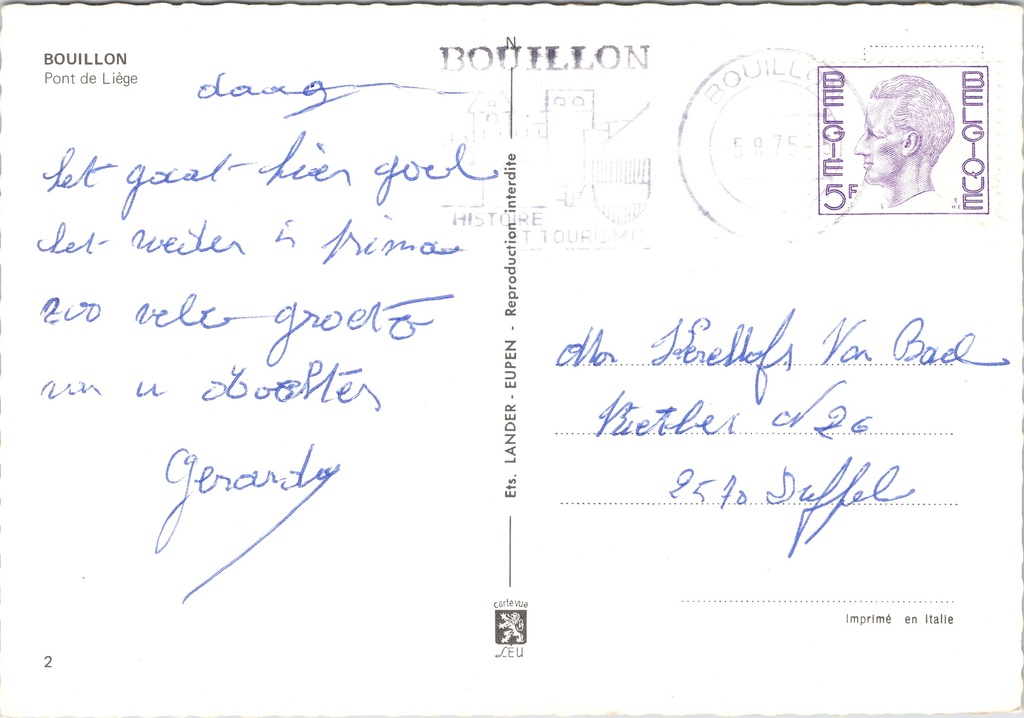 BOUILLON
Pont de Liège
daag
het gaat hier goed
het weder is prima
zoo vele groetz
van u
Gerardy
2
N
Ets. LANDER - EUPEN - Reproduction interdite
cartevue
LEU
BOUILLON
HISTOIRE
ET TOURISME
BOUILLO
5 9 75
BELGIE 5F
BELGIQUE
Van Bael
N 26
2570 Duffel
Imprimé en Italie